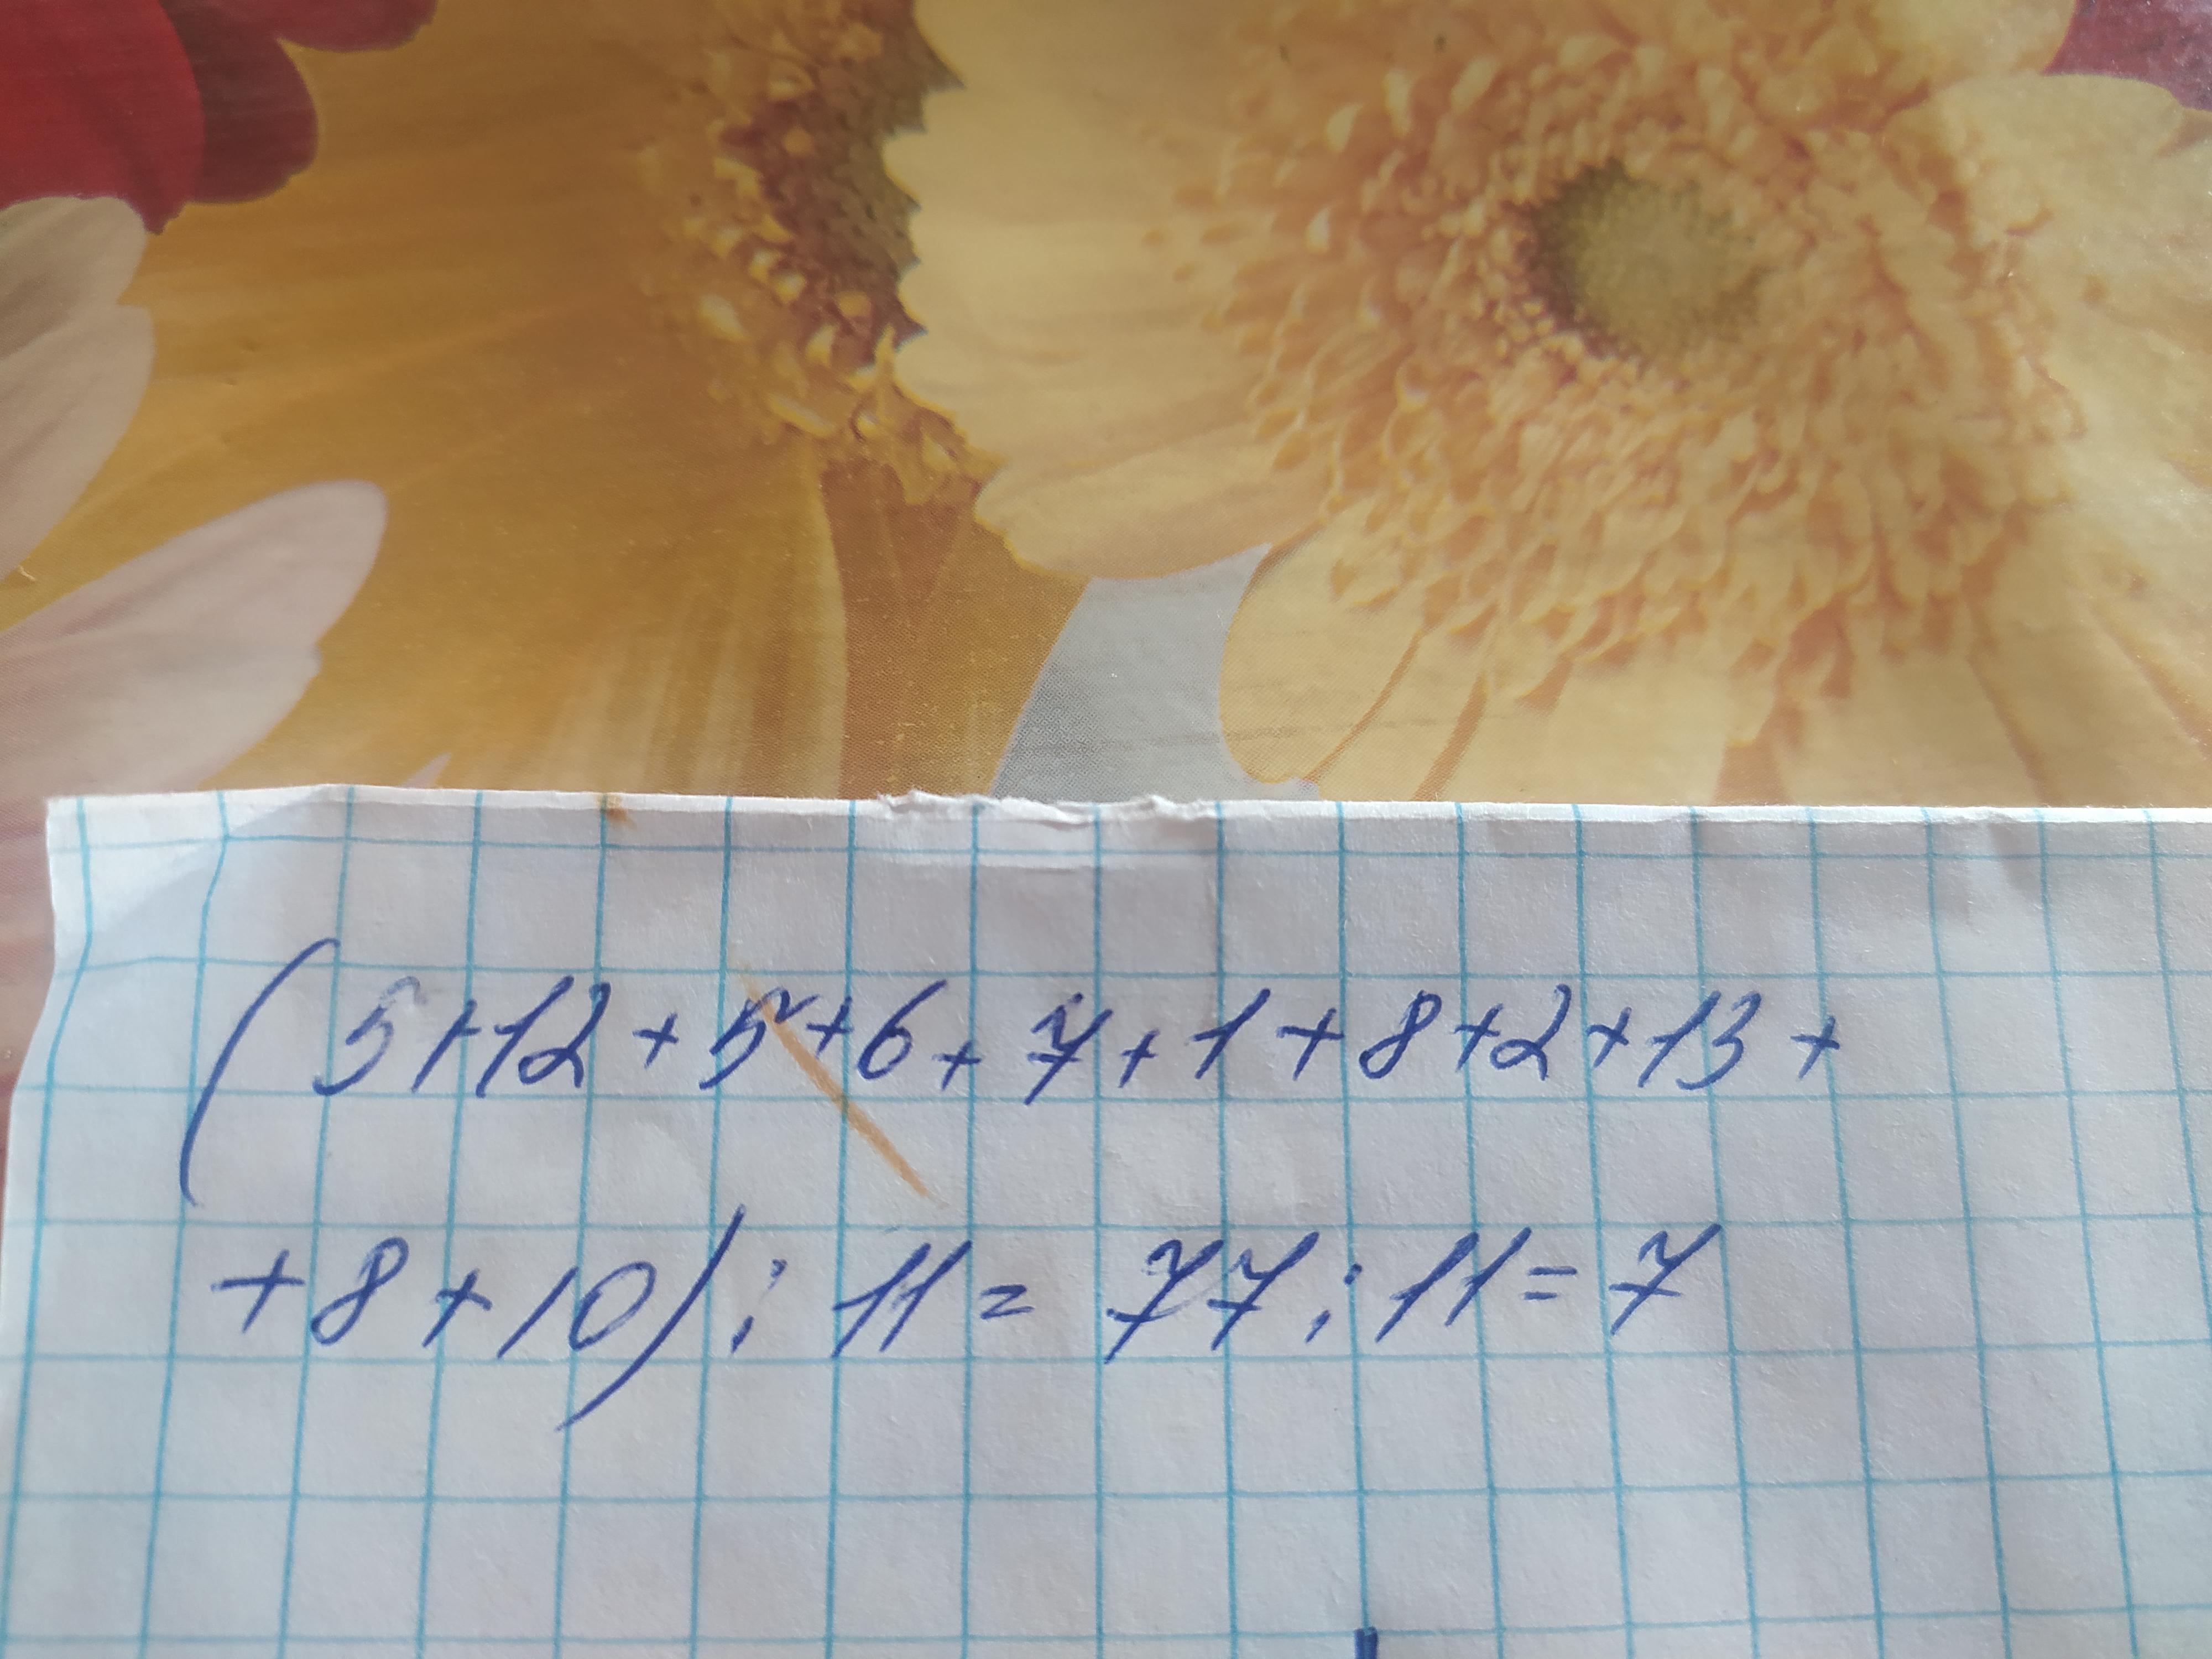 (5+12+5+6+7+1+8+2+13+
+8+10):11=77:11=7